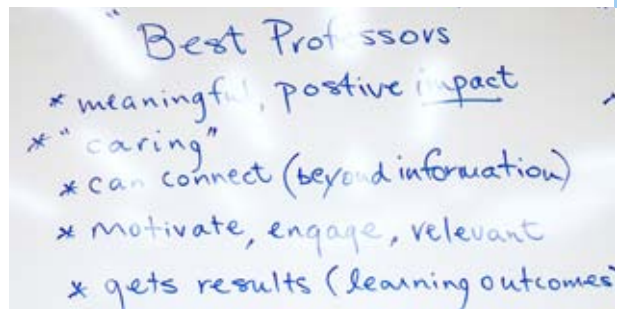 "Best Professors
* meaningful, postive impact
* "caring"
* can connect (beyond information)
* motivate, engage, relevant
* gets results (learning outcomes